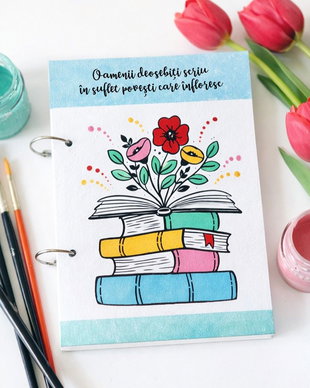 Oamenii deosebiți scriu
în suflet povești care înfloresc